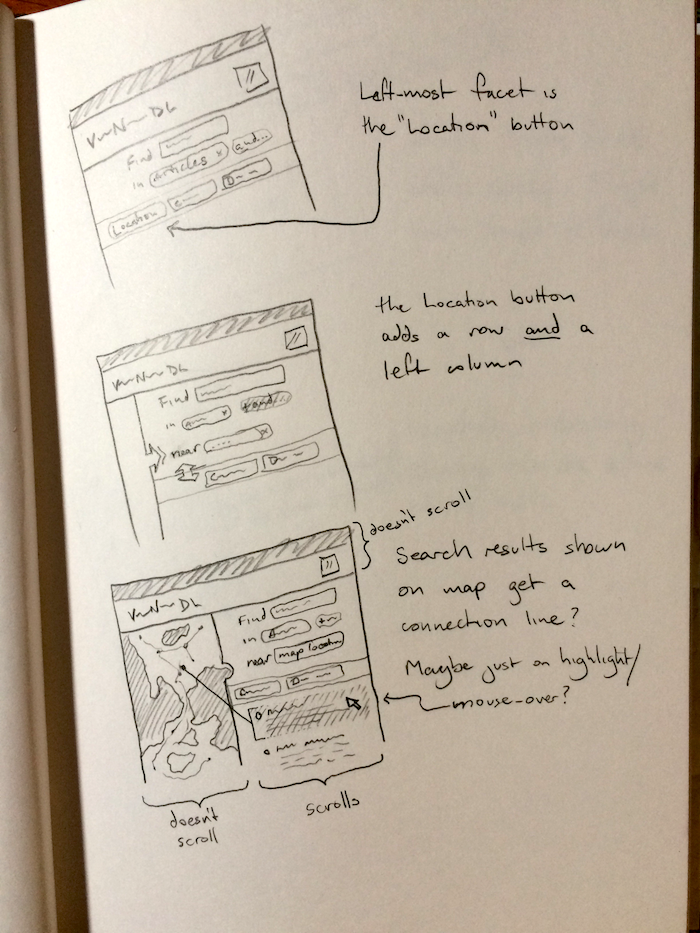 Left-most facet is
the "Location" button
Find
in Articles x and...
Location
the Location button
adds a row and a
left column
Find
in x
near .... x
doesn't scroll
Search results shown
on map get a
connection line?
Maybe just on highlight/
mouse-over?
Find
in
near map location
doesn't
scroll
scrolls